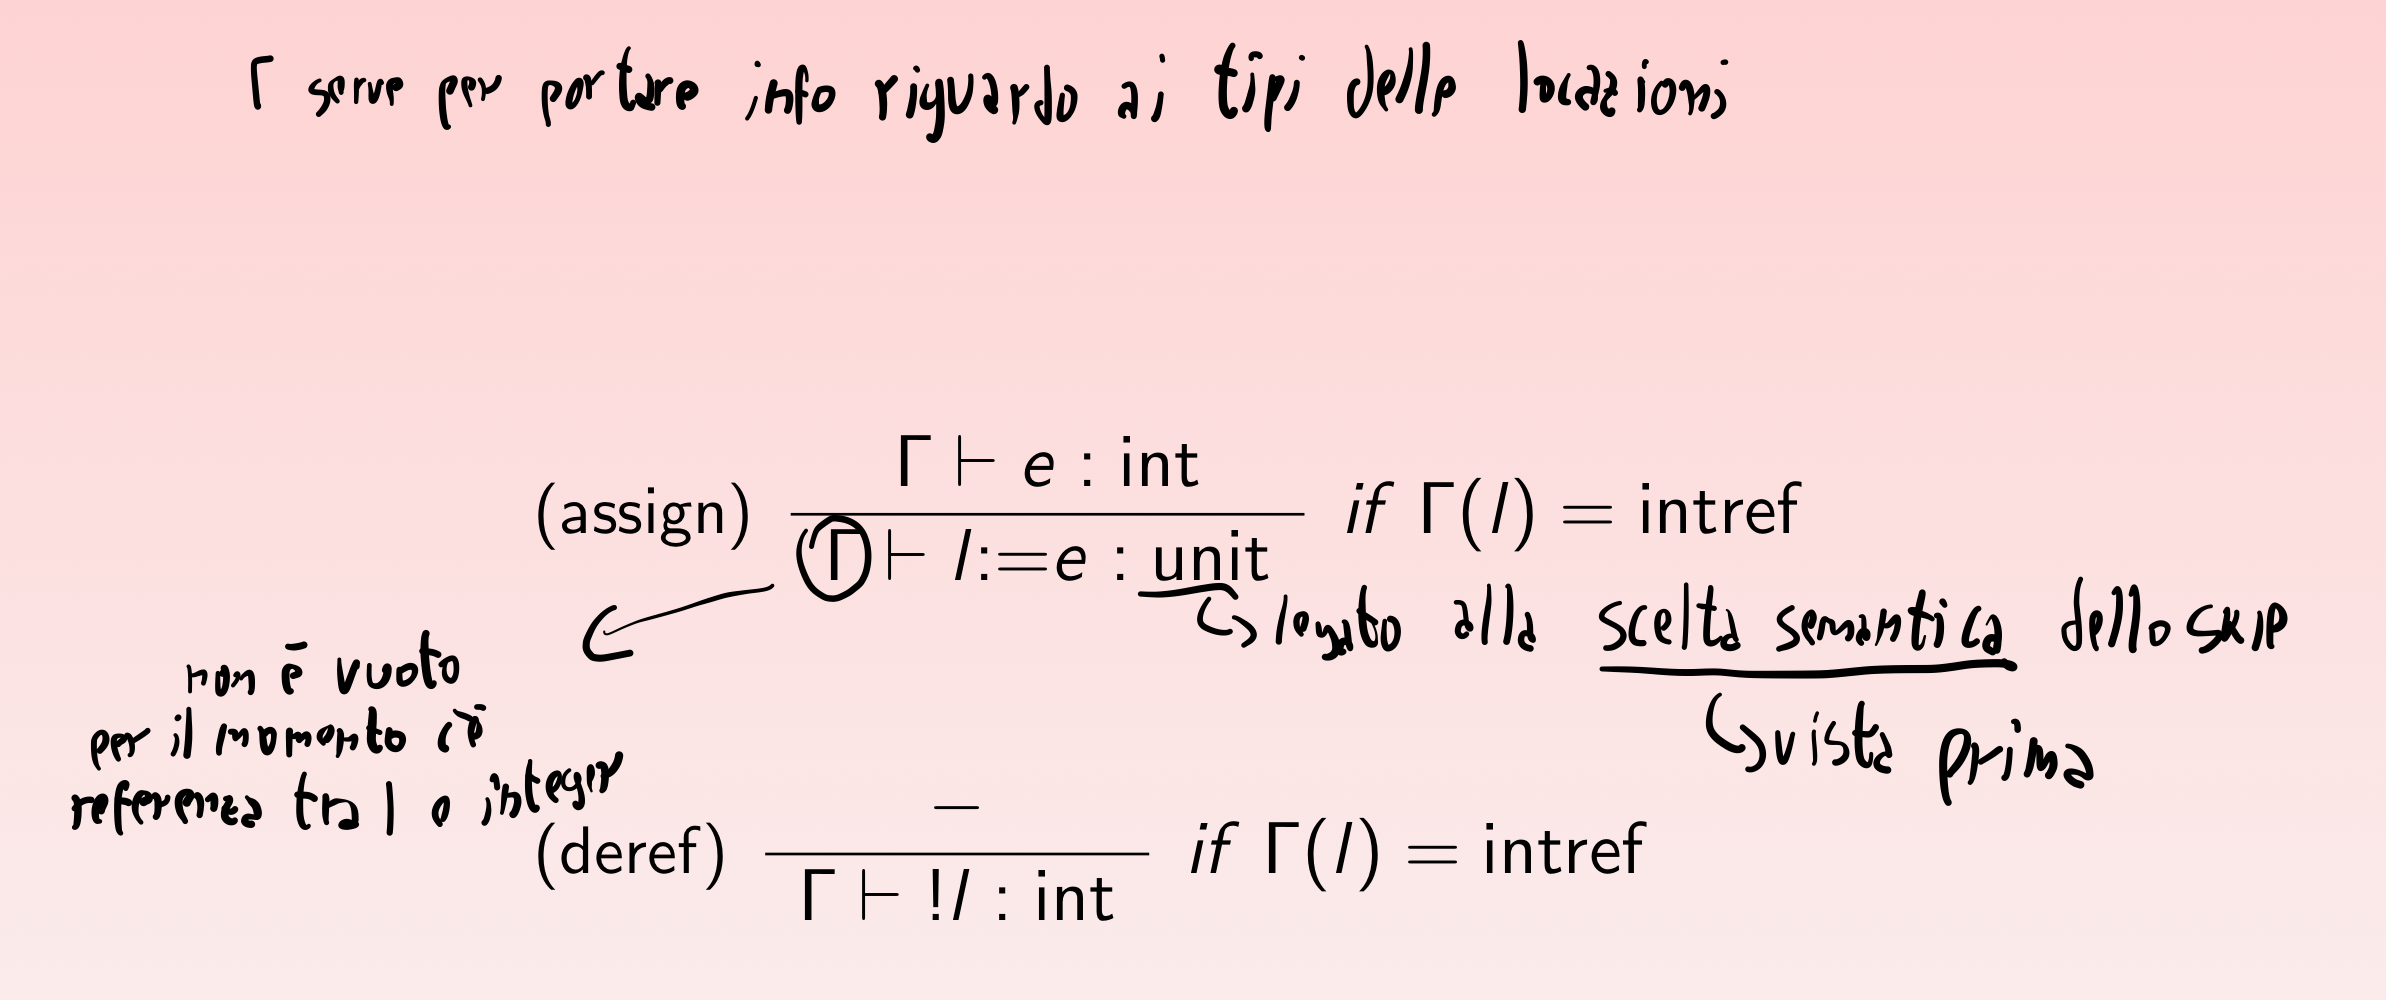 Γ serve per portare info riguardo ai tipi delle locazioni
(assign) Γ ⊢ e : int if Γ(l) = intref
Γ ⊢ l:=e : unit
legato alla scelta semantica dello skip
vista prima
non è vuoto
per il momento c'è
referenza tra l e integer
(deref) — if Γ(l) = intref
Γ ⊢ !l : int